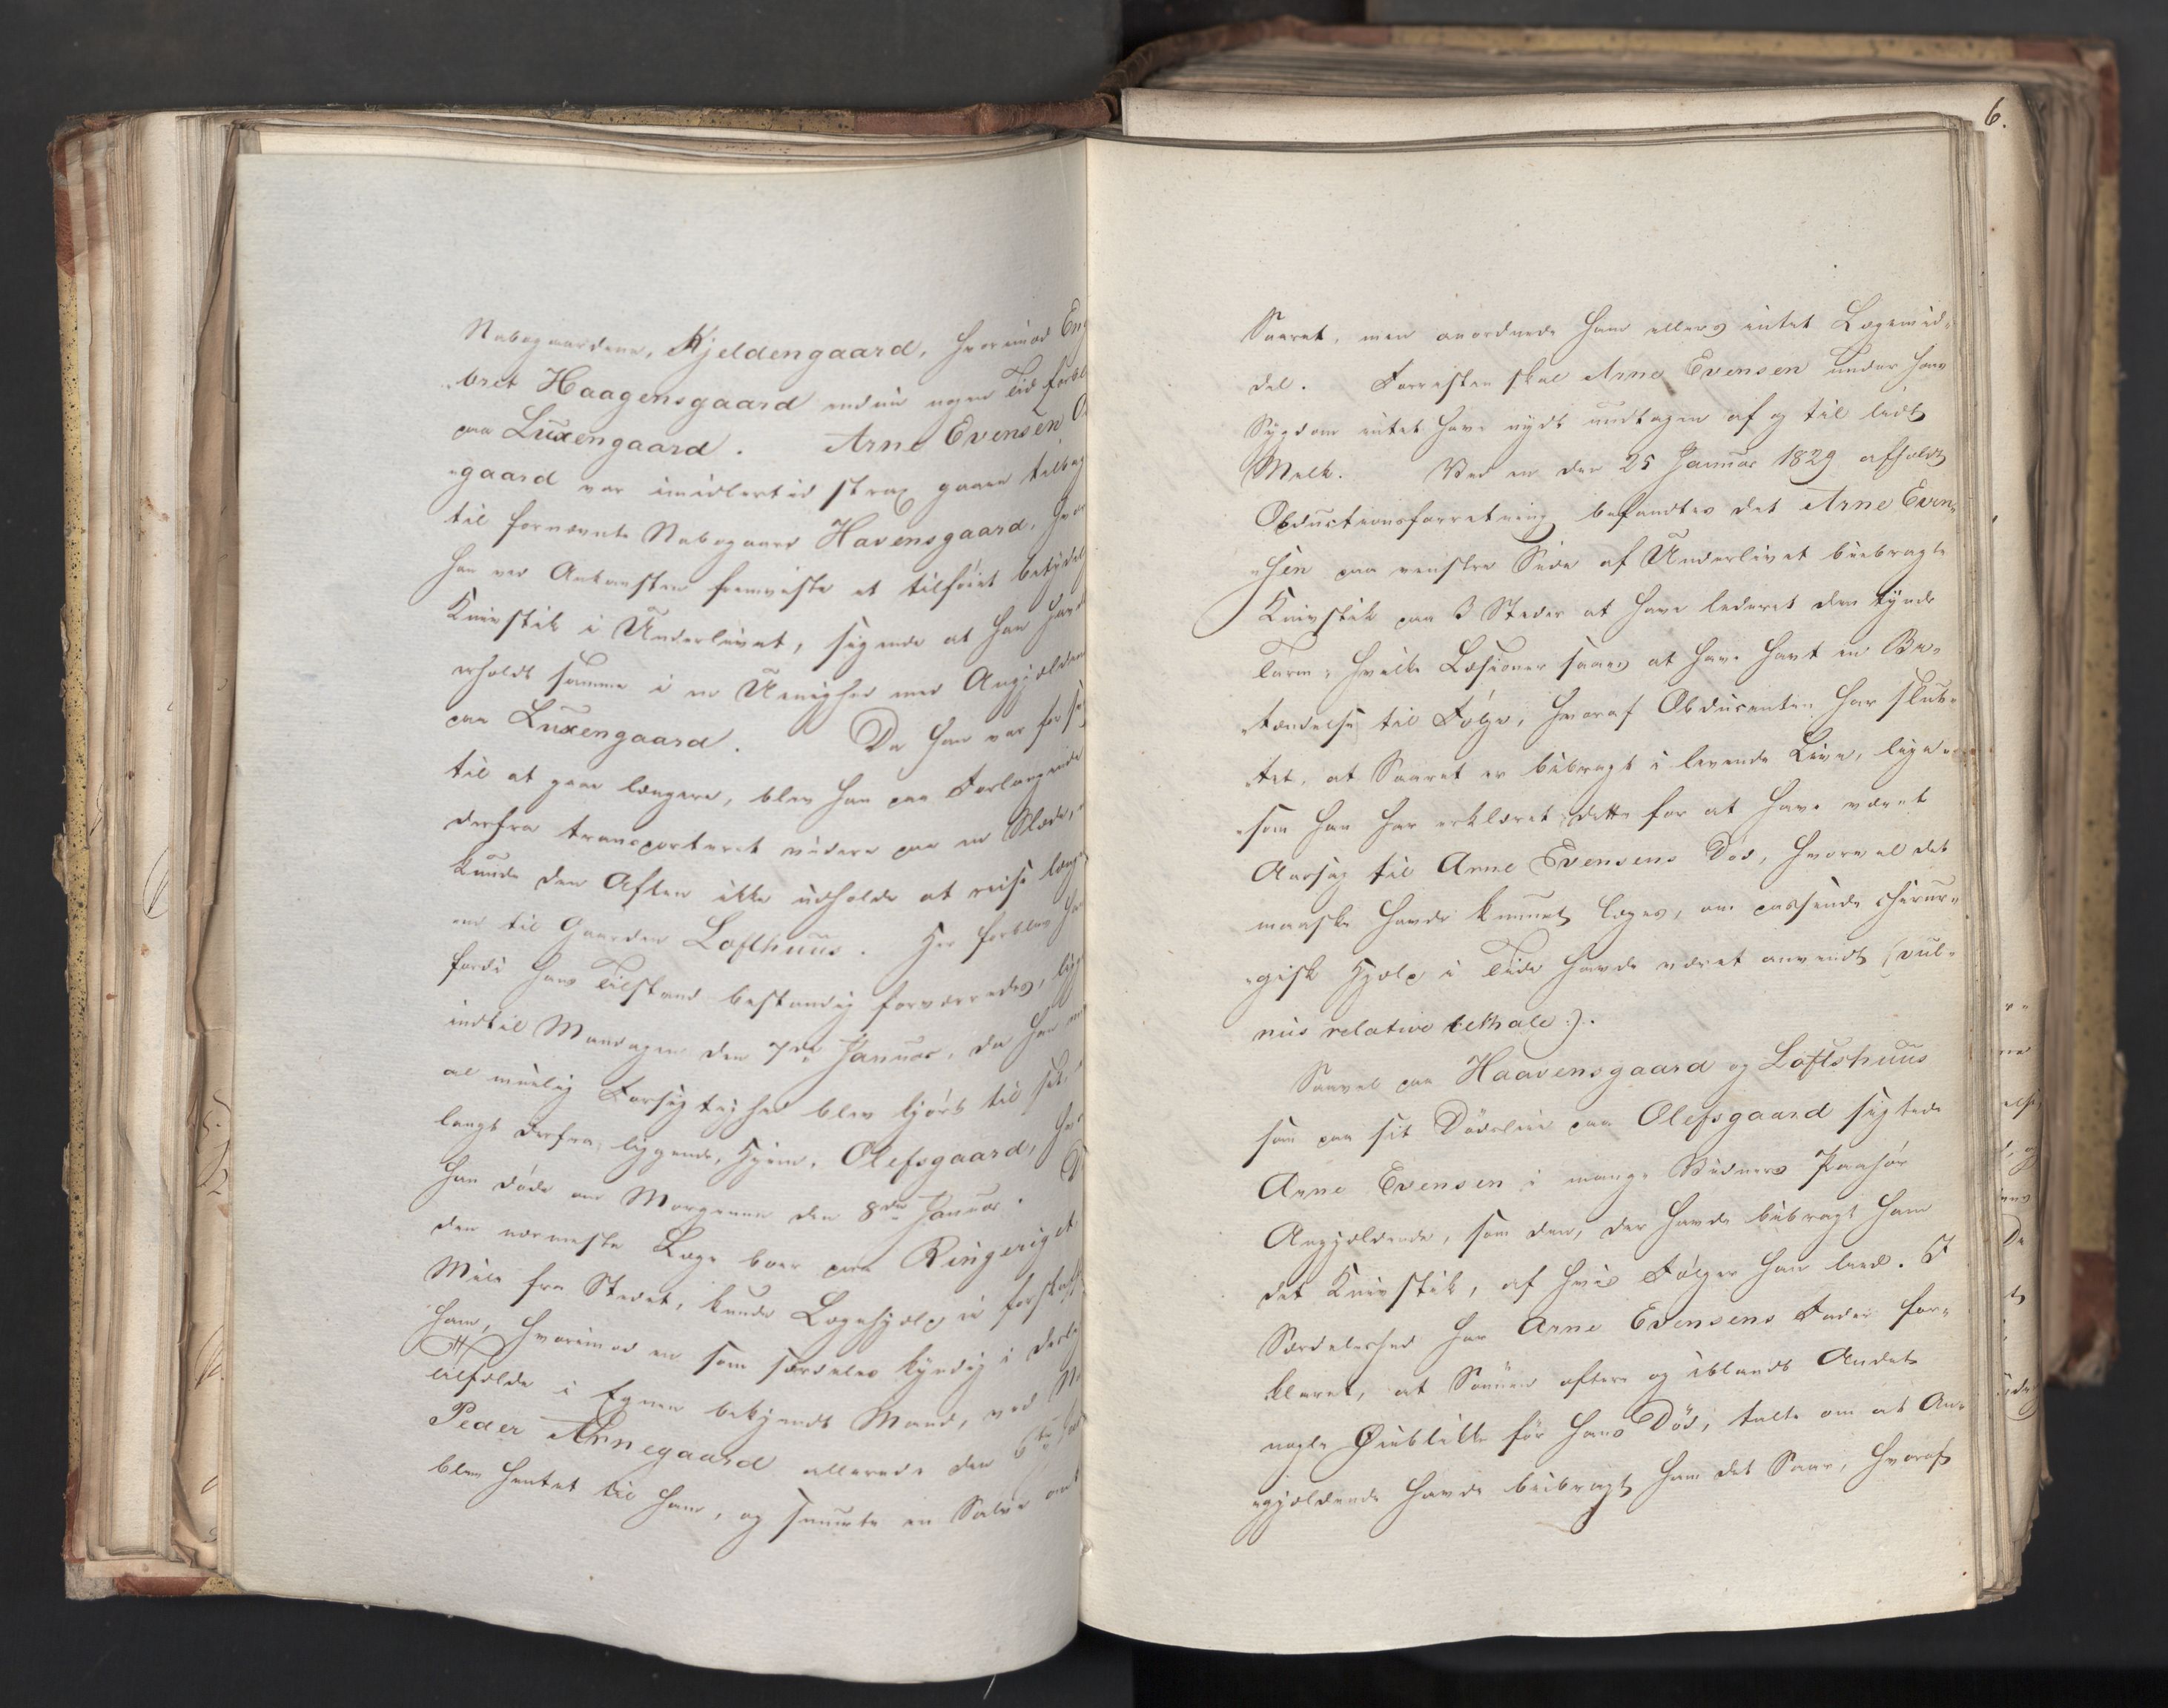 Nabogaardene, Kjeldengaard, hvorimod Eng
bret Haagensgaard endnu nogen Tid forbl
paa Luxengaard. Arne Evensen O
"gaard var imidlertid strax gaaen tilbag
til fornævnte Nabogaard Havensgaard, hvor
han ved Ankomsten fremviste et tilføiet betydel
Knivstik i Underlivet, sigende at han hav
erholdt samme i en Uenighed med Angjælden
paa Luxengaard. Da han var for
til at gaae længere, blev han paa Forlangende
derfra transporteret videre paa en Slæde,
kunde den Aften ikke udholde at reise læng
end til Gaarden Lofthuus. Her forblev
fordi hans Tilstand bestandig forværredes, lig
indtil Mandagen den 7de Januar, da han
al muelig Forsigtighed blev kjørt til sit,
langt derfra liggende, Hjem, Olefsgaard, hv
han døde om Morgenen den 8de Januar. D
den nærmeste Læge boer paa Ringeriget
Mile fra Stedet, kunde Lægehjælp ei forskaff
ham, hvorimod en som særdeles kyndig i desl
tilfælde i Egnen bekjendt Mand, ved N.
Peder Arnegaard allerede den 6te Jan
blev hentet til ham, og smurte en Salve om
6.
Saaret, men anordnede ham ellers intet Lægemid"
del. Forresten skal Arne Evensen under hans
Sygdom intet have nydt undtagen af og til lidt
Melk. Ved en den 25 Januar 1829 afholdt
Obductionsforretning befandtes det Arne Even"
"sen paa venstre Side af Underlivet biebragte
Knivstik paa 3 Steder at have lederet den tynde
Tarm, hvilke Læsioner saaes at have havt en Be"
"tændelse til Følge, hvoraf Obducenten har slut"
"tet, at Saaret er bibragt i levende Live, lige"
"som han har erklæret dette for at have været
Aarsag til Arne Evensens Død, hvorvel det
maaske havde kunnet læges, om passende chirur"
"gisk Hjælp i Tide havde været anvendt (vul"
nus relative lethale:).
Saavel paa Haavensgaard og Loftshuus
som paa sit Dødsleie paa Olefsgaard sigtede
Arne Evensen i mange Vidners Paahør
Angjældende, som den, der havde bibragt ham
det Knivstik, af hvis Følger han leed. I
Særdeleshed har Arne Evensens Fader for"
klaret, at Sønnen oftere og iblandt Andet
nogle Øieblikke før hans Død, talte om at An"
"gjældende havde bibragt ham det Saar, hvoraf